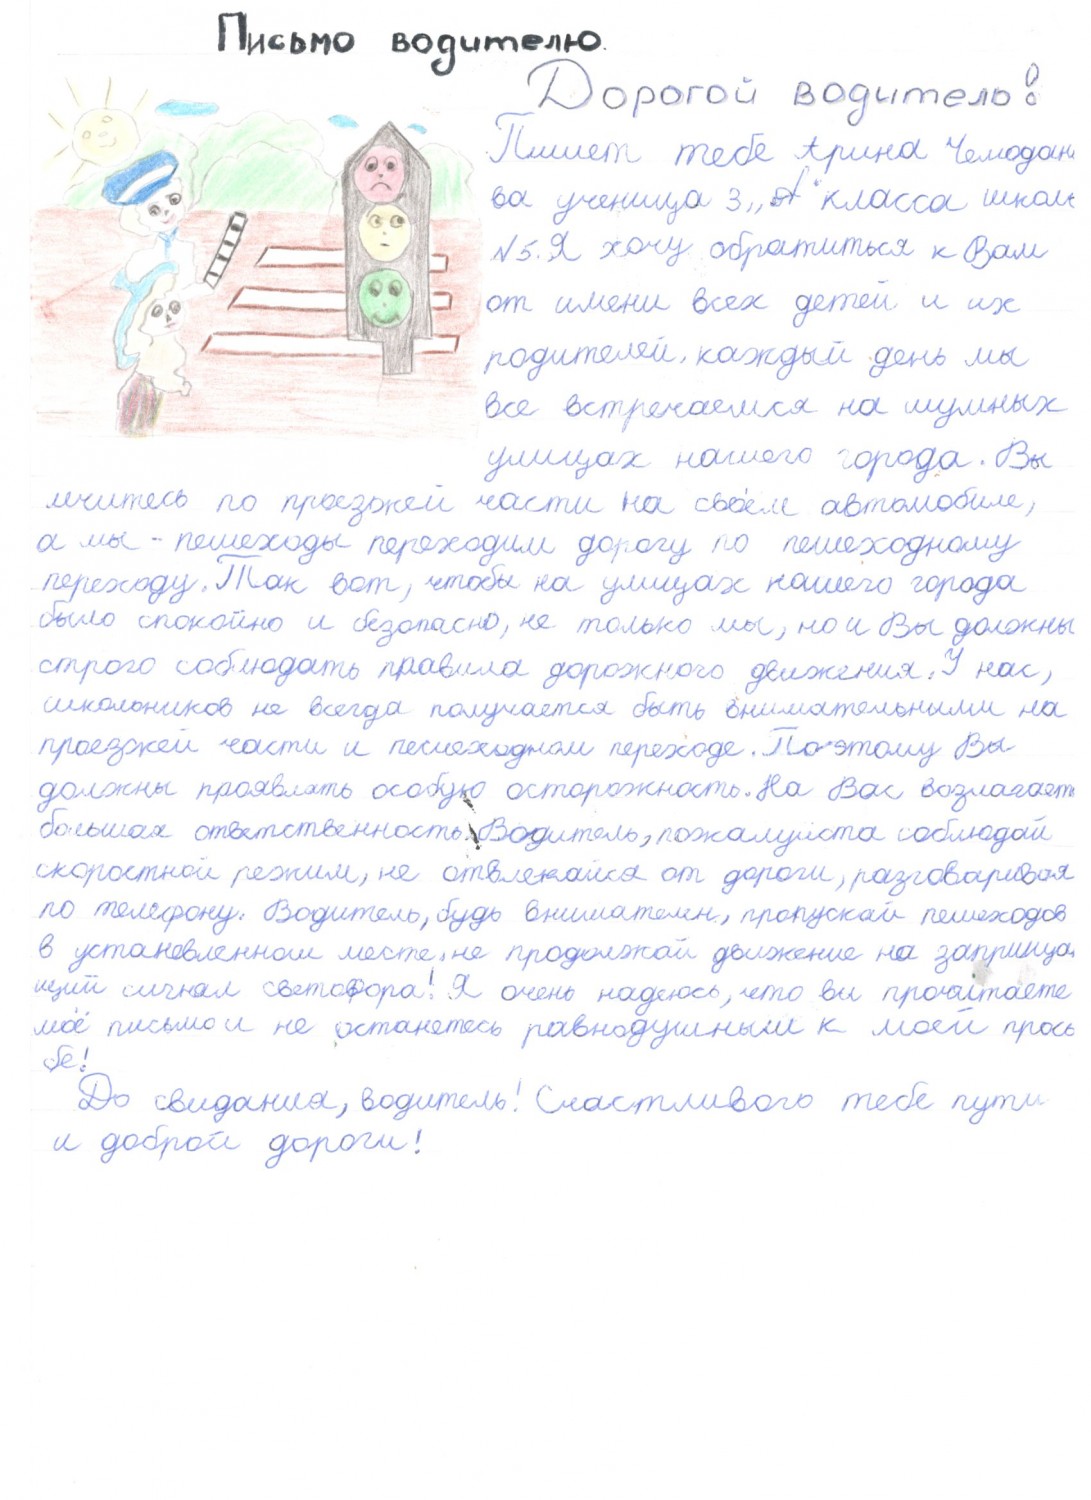 Письмо водителю.
Дорогой водитель!
Пишет тебе Арина Чемодан
ва ученица 3 „А" класса школ
№5. Я хочу обратиться к Вам
от имени всех детей и их
родителей. каждый день мы
все встречаемся на шумных
улицах нашего города. Вы
мчитесь по проезжей части на своём автомобиле,
а мы - пешеходы переходим дорогу по пешеходному
переходу. Так вот, чтобы на улицах нашего города
было спокойно и безопасно, не только мы, но и Вы должны
строго соблюдать правила дорожного движения. У нас,
школьников не всегда получается быть внимательными на
проезжей части и пешеходном переходе. Поэтому Вы
должны проявлять особую осторожность. На Вас возлагает
большая ответственность. Водитель, пожалуйста соблюдай
скоростной режим, не отвлекайся от дороги, разговаривая
по телефону. Водитель, будь внимателен, пропускай пешеходов
в установленном месте, не продолжай движение на заприща
щий сигнал светофора! Я очень надеюсь, что вы прочитаете
моё письмо и не останетесь равнодушным к моей прось
бе!
До свидания, водитель! Счастливого тебе пути
и доброй дороги!